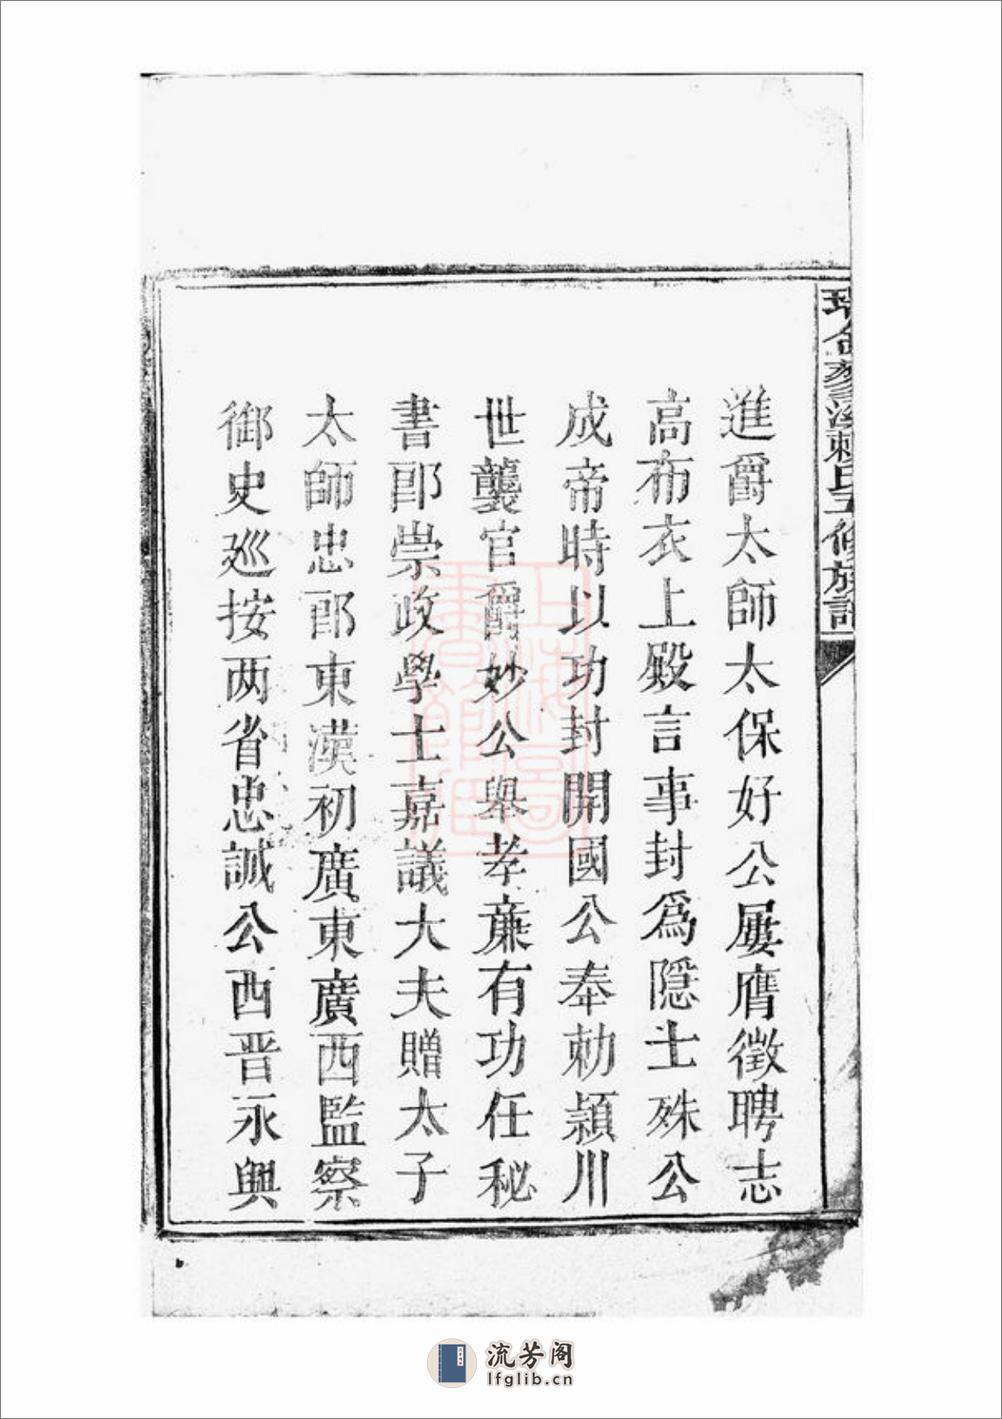 進爵太師太保好公屢膺徵聘志
高布衣上殿言事封爲隱士殊公
成帝時以功封開國公奉勅頴川
世襲官爵妙公舉孝亷有功任秘
書郎崇政學士嘉議大夫贈太子
太師忠郎東漢初廣東廣西監察
御史廵按两省忠誠公西晋永興
氏五修族譜
上海圖書館藏
流芳阁
lfglib.cn